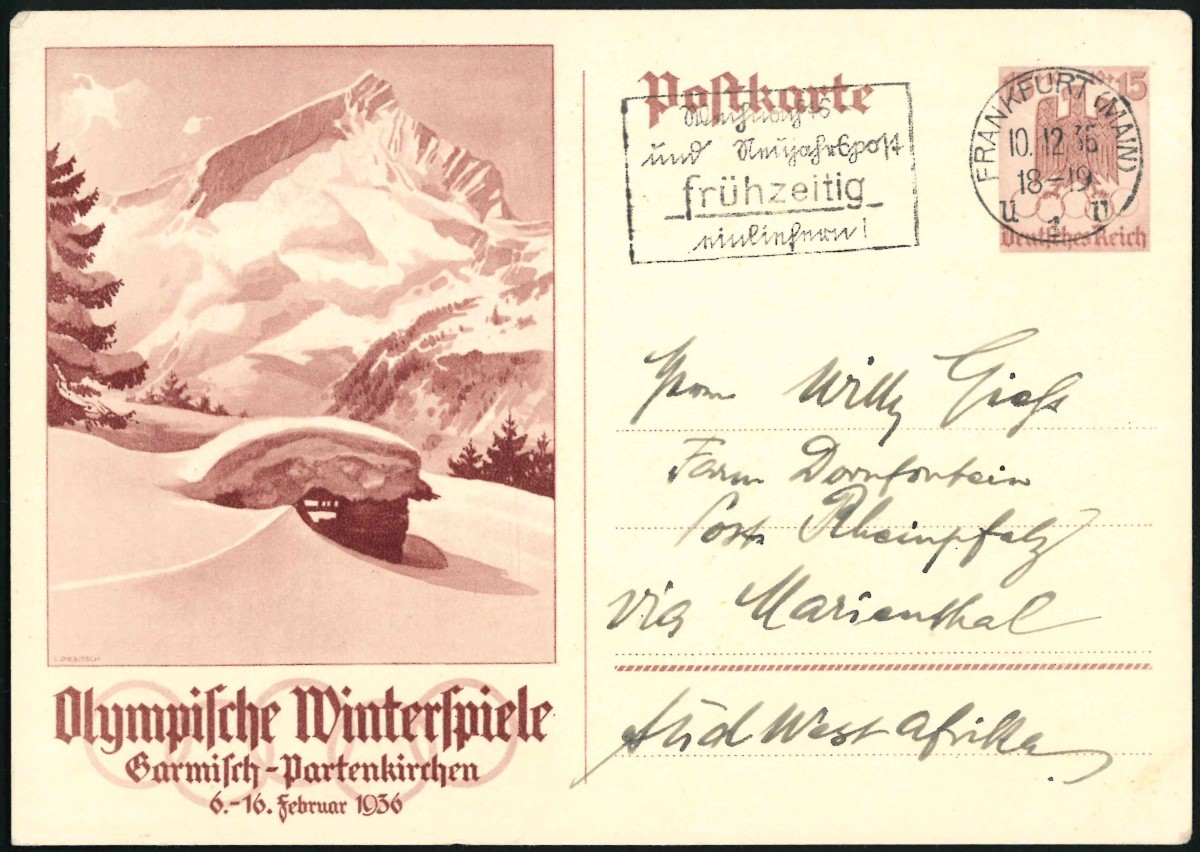 Postkarte
Weihnachts
und Neujahrspost
frühzeitig
einliefern!
FRANKFURT (MAIN)
10.12.35
18-19
u 1 n
+15
Deutsches Reich
Willy
Farm Dornfontein
Post Rheinpfalz
via Marienthal
Süd West Afrika
Olympische Winterspiele
Garmisch-Partenkirchen
6.-16. Februar 1936